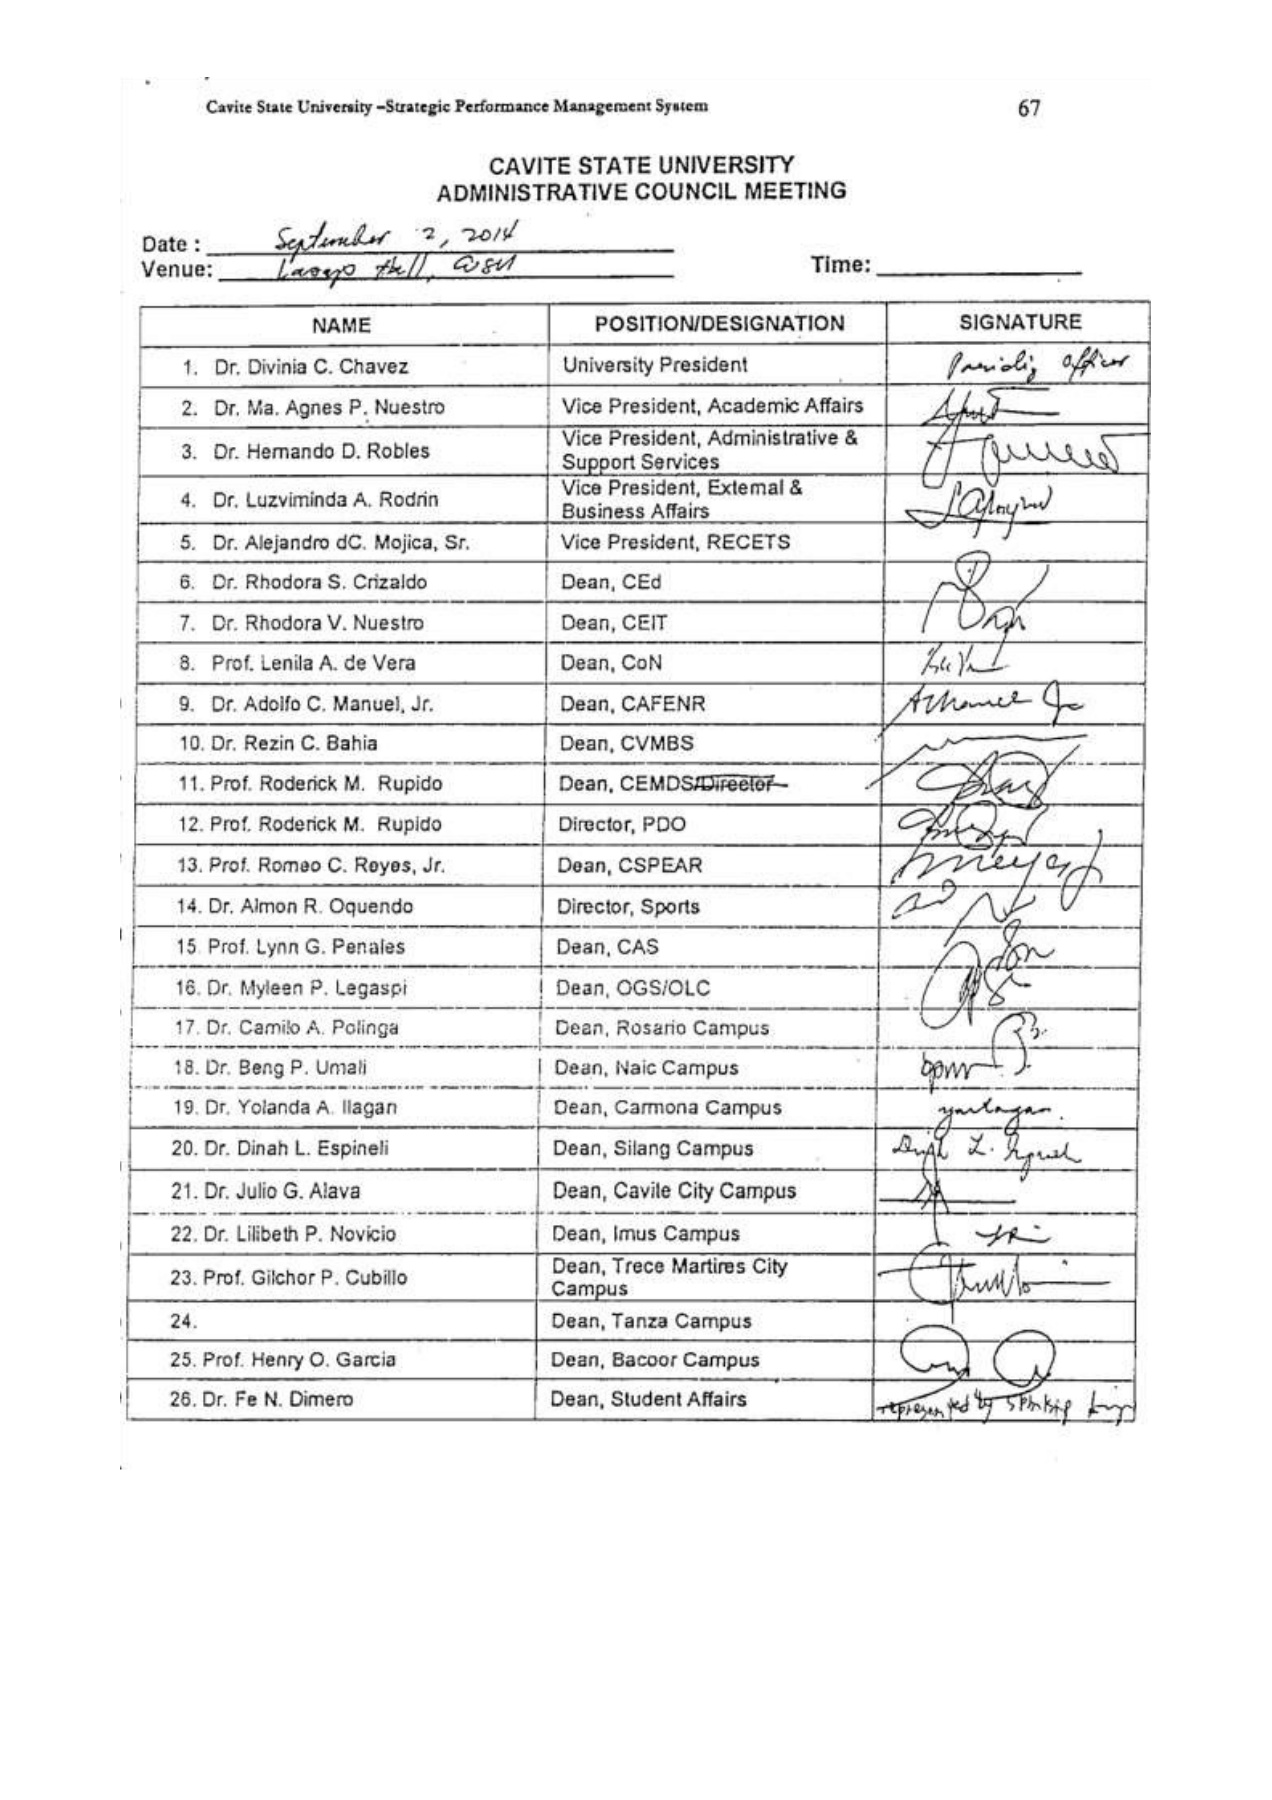 Cavite State University –Strategic Performance Management System 67
CAVITE STATE UNIVERSITY
ADMINISTRATIVE COUNCIL MEETING
Date : September 2, 2014
Venue: Hall, Time:
NAME POSITION/DESIGNATION SIGNATURE
1. Dr. Divinia C. Chavez University President Presiding Officer
2. Dr. Ma. Agnes P. Nuestro Vice President, Academic Affairs
3. Dr. Hernando D. Robles Vice President, Administrative &
Support Services
4. Dr. Luzviminda A. Rodrin Vice President, External &
Business Affairs
5. Dr. Alejandro dC. Mojica, Sr. Vice President, RECETS
6. Dr. Rhodora S. Crizaldo Dean, CEd
7. Dr. Rhodora V. Nuestro Dean, CEIT
8. Prof. Lenila A. de Vera Dean, CoN
9. Dr. Adolfo C. Manuel, Jr. Dean, CAFENR
10. Dr. Rezin C. Bahia Dean, CVMBS
11. Prof. Roderick M. Rupido Dean, CEMDS/Director
12. Prof. Roderick M. Rupido Director, PDO
13. Prof. Romeo C. Reyes, Jr. Dean, CSPEAR
14. Dr. Almon R. Oquendo Director, Sports
15. Prof. Lynn G. Penales Dean, CAS
16. Dr. Myleen P. Legaspi Dean, OGS/OLC
17. Dr. Camilo A. Polinga Dean, Rosario Campus
18. Dr. Beng P. Umali Dean, Naic Campus
19. Dr. Yolanda A. Ilagan Dean, Carmona Campus
20. Dr. Dinah L. Espineli Dean, Silang Campus
21. Dr. Julio G. Alava Dean, Cavite City Campus
22. Dr. Lilibeth P. Novicio Dean, Imus Campus
23. Prof. Gilchor P. Cubillo Dean, Trece Martires City
Campus
24. Dean, Tanza Campus
25. Prof. Henry O. Garcia Dean, Bacoor Campus
26. Dr. Fe N. Dimero Dean, Student Affairs represented by